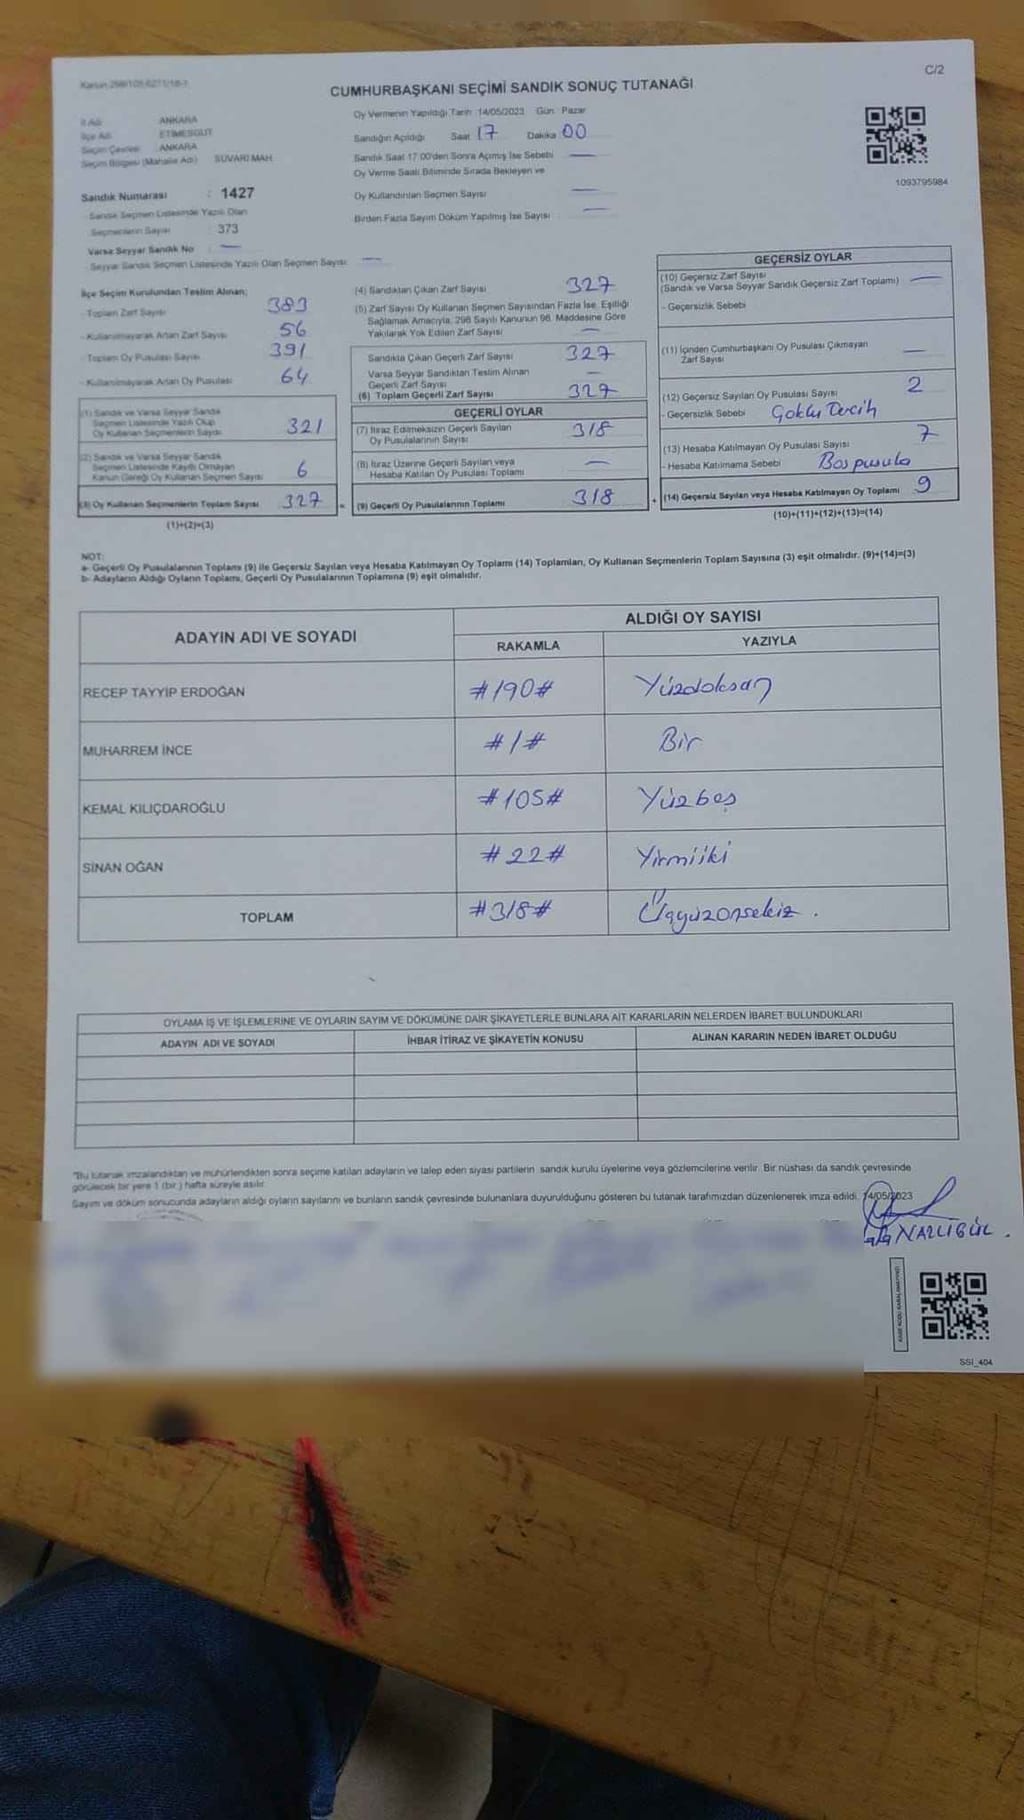 C/2
Kanun:298/105-6271/18-1
CUMHURBAŞKANI SEÇİMİ SANDIK SONUÇ TUTANAĞI
İl Adı : ANKARA
İlçe Adı : ETİMESGUT
Seçim Çevresi : ANKARA
Seçim Bölgesi (Mahalle Adı) : SÜVARİ MAH.
Oy Vermenin Yapıldığı Tarih :14/05/2023 Gün : Pazar
Sandığın Açıldığı Saat 17 Dakika 00
Sandık Saat 17:00'den Sonra Açılmış İse Sebebi —
Oy Verme Saati Bitiminde Sırada Bekleyen ve
Oy Kullandırılan Seçmen Sayısı —
Birden Fazla Sayım Döküm Yapılmış İse Sayısı —
1093795984
Sandık Numarası : 1427
- Sandık Seçmen Listesinde Yazılı Olan
Seçmenlerin Sayısı : 373
Varsa Seyyar Sandık No : —
- Seyyar Sandık Seçmen Listesinde Yazılı Olan Seçmen Sayısı: —
İlçe Seçim Kurulundan Teslim Alınan;
- Toplam Zarf Sayısı 383
- Kullanılmayarak Artan Zarf Sayısı 56
- Toplam Oy Pusulası Sayısı 391
- Kullanılmayarak Artan Oy Pusulası 64
(1) Sandık ve Varsa Seyyar Sandık
Seçmen Listesinde Yazılı Olup
Oy Kullanan Seçmenlerin Sayısı 321
(2) Sandık ve Varsa Seyyar Sandık
Seçmen Listesinde Kayıtlı Olmayan
Kanun Gereği Oy Kullanan Seçmen Sayısı 6
(3) Oy Kullanan Seçmenlerin Toplam Sayısı 327
(1)+(2)=(3)
(4) Sandıktan Çıkan Zarf Sayısı 327
(5) Zarf Sayısı Oy Kullanan Seçmen Sayısından Fazla İse, Eşitliği
Sağlamak Amacıyla, 298 Sayılı Kanunun 98. Maddesine Göre
Yakılarak Yok Edilen Zarf Sayısı —
Sandıkta Çıkan Geçerli Zarf Sayısı 327
Varsa Seyyar Sandıktan Teslim Alınan
Geçerli Zarf Sayısı —
(6) Toplam Geçerli Zarf Sayısı 327
GEÇERLİ OYLAR
(7) İtiraz Edilmeksizin Geçerli Sayılan
Oy Pusulalarının Sayısı 318
(8) İtiraz Üzerine Geçerli Sayılan veya
Hesaba Katılan Oy Pusulası Toplamı —
= (9) Geçerli Oy Pusulalarının Toplamı 318
GEÇERSİZ OYLAR
(10) Geçersiz Zarf Sayısı
(Sandık ve Varsa Seyyar Sandık Geçersiz Zarf Toplamı) —
- Geçersizlik Sebebi
(11) İçinden Cumhurbaşkanı Oy Pusulası Çıkmayan
Zarf Sayısı —
(12) Geçersiz Sayılan Oy Pusulası Sayısı 2
- Geçersizlik Sebebi Çoklu Tercih
(13) Hesaba Katılmayan Oy Pusulası Sayısı 7
- Hesaba Katılmama Sebebi Boş pusula
+ (14) Geçersiz Sayılan veya Hesaba Katılmayan Oy Toplamı 9
(10)+(11)+(12)+(13)=(14)
NOT:
a- Geçerli Oy Pusulalarının Toplamı (9) ile Geçersiz Sayılan veya Hesaba Katılmayan Oy Toplamı (14) Toplamları, Oy Kullanan Seçmenlerin Toplam Sayısına (3) eşit olmalıdır. (9)+(14)=(3)
b- Adayların Aldığı Oyların Toplamı, Geçerli Oy Pusulalarının Toplamına (9) eşit olmalıdır.
ADAYIN ADI VE SOYADI ALDIĞI OY SAYISI
RAKAMLA YAZIYLA
RECEP TAYYİP ERDOĞAN #190# Yüzdoksan
MUHARREM İNCE #1# Bir
KEMAL KILIÇDAROĞLU #105# Yüzbeş
SİNAN OĞAN #22# Yirmiiki
TOPLAM #318# Üçyüzonsekiz.
OYLAMA İŞ VE İŞLEMLERİNE VE OYLARIN SAYIM VE DÖKÜMÜNE DAİR ŞİKAYETLERLE BUNLARA AİT KARARLARIN NELERDEN İBARET BULUNDUKLARI
ADAYIN ADI VE SOYADI İHBAR İTİRAZ VE ŞİKAYETİN KONUSU ALINAN KARARIN NEDEN İBARET OLDUĞU
*Bu tutanak imzalandıktan ve mühürlendikten sonra seçime katılan adayların ve talep eden siyasi partilerin sandık kurulu üyelerine veya gözlemcilerine verilir. Bir nüshası da sandık çevresinde
görülecek bir yere 1 (bir) hafta süreyle asılır.
Sayım ve döküm sonucunda adayların aldığı oyların sayılarını ve bunların sandık çevresinde bulunanlara duyurulduğunu gösteren bu tutanak tarafımızdan düzenlenerek imza edildi. 14/05/2023
NAZLIGÜL.
SSI_404